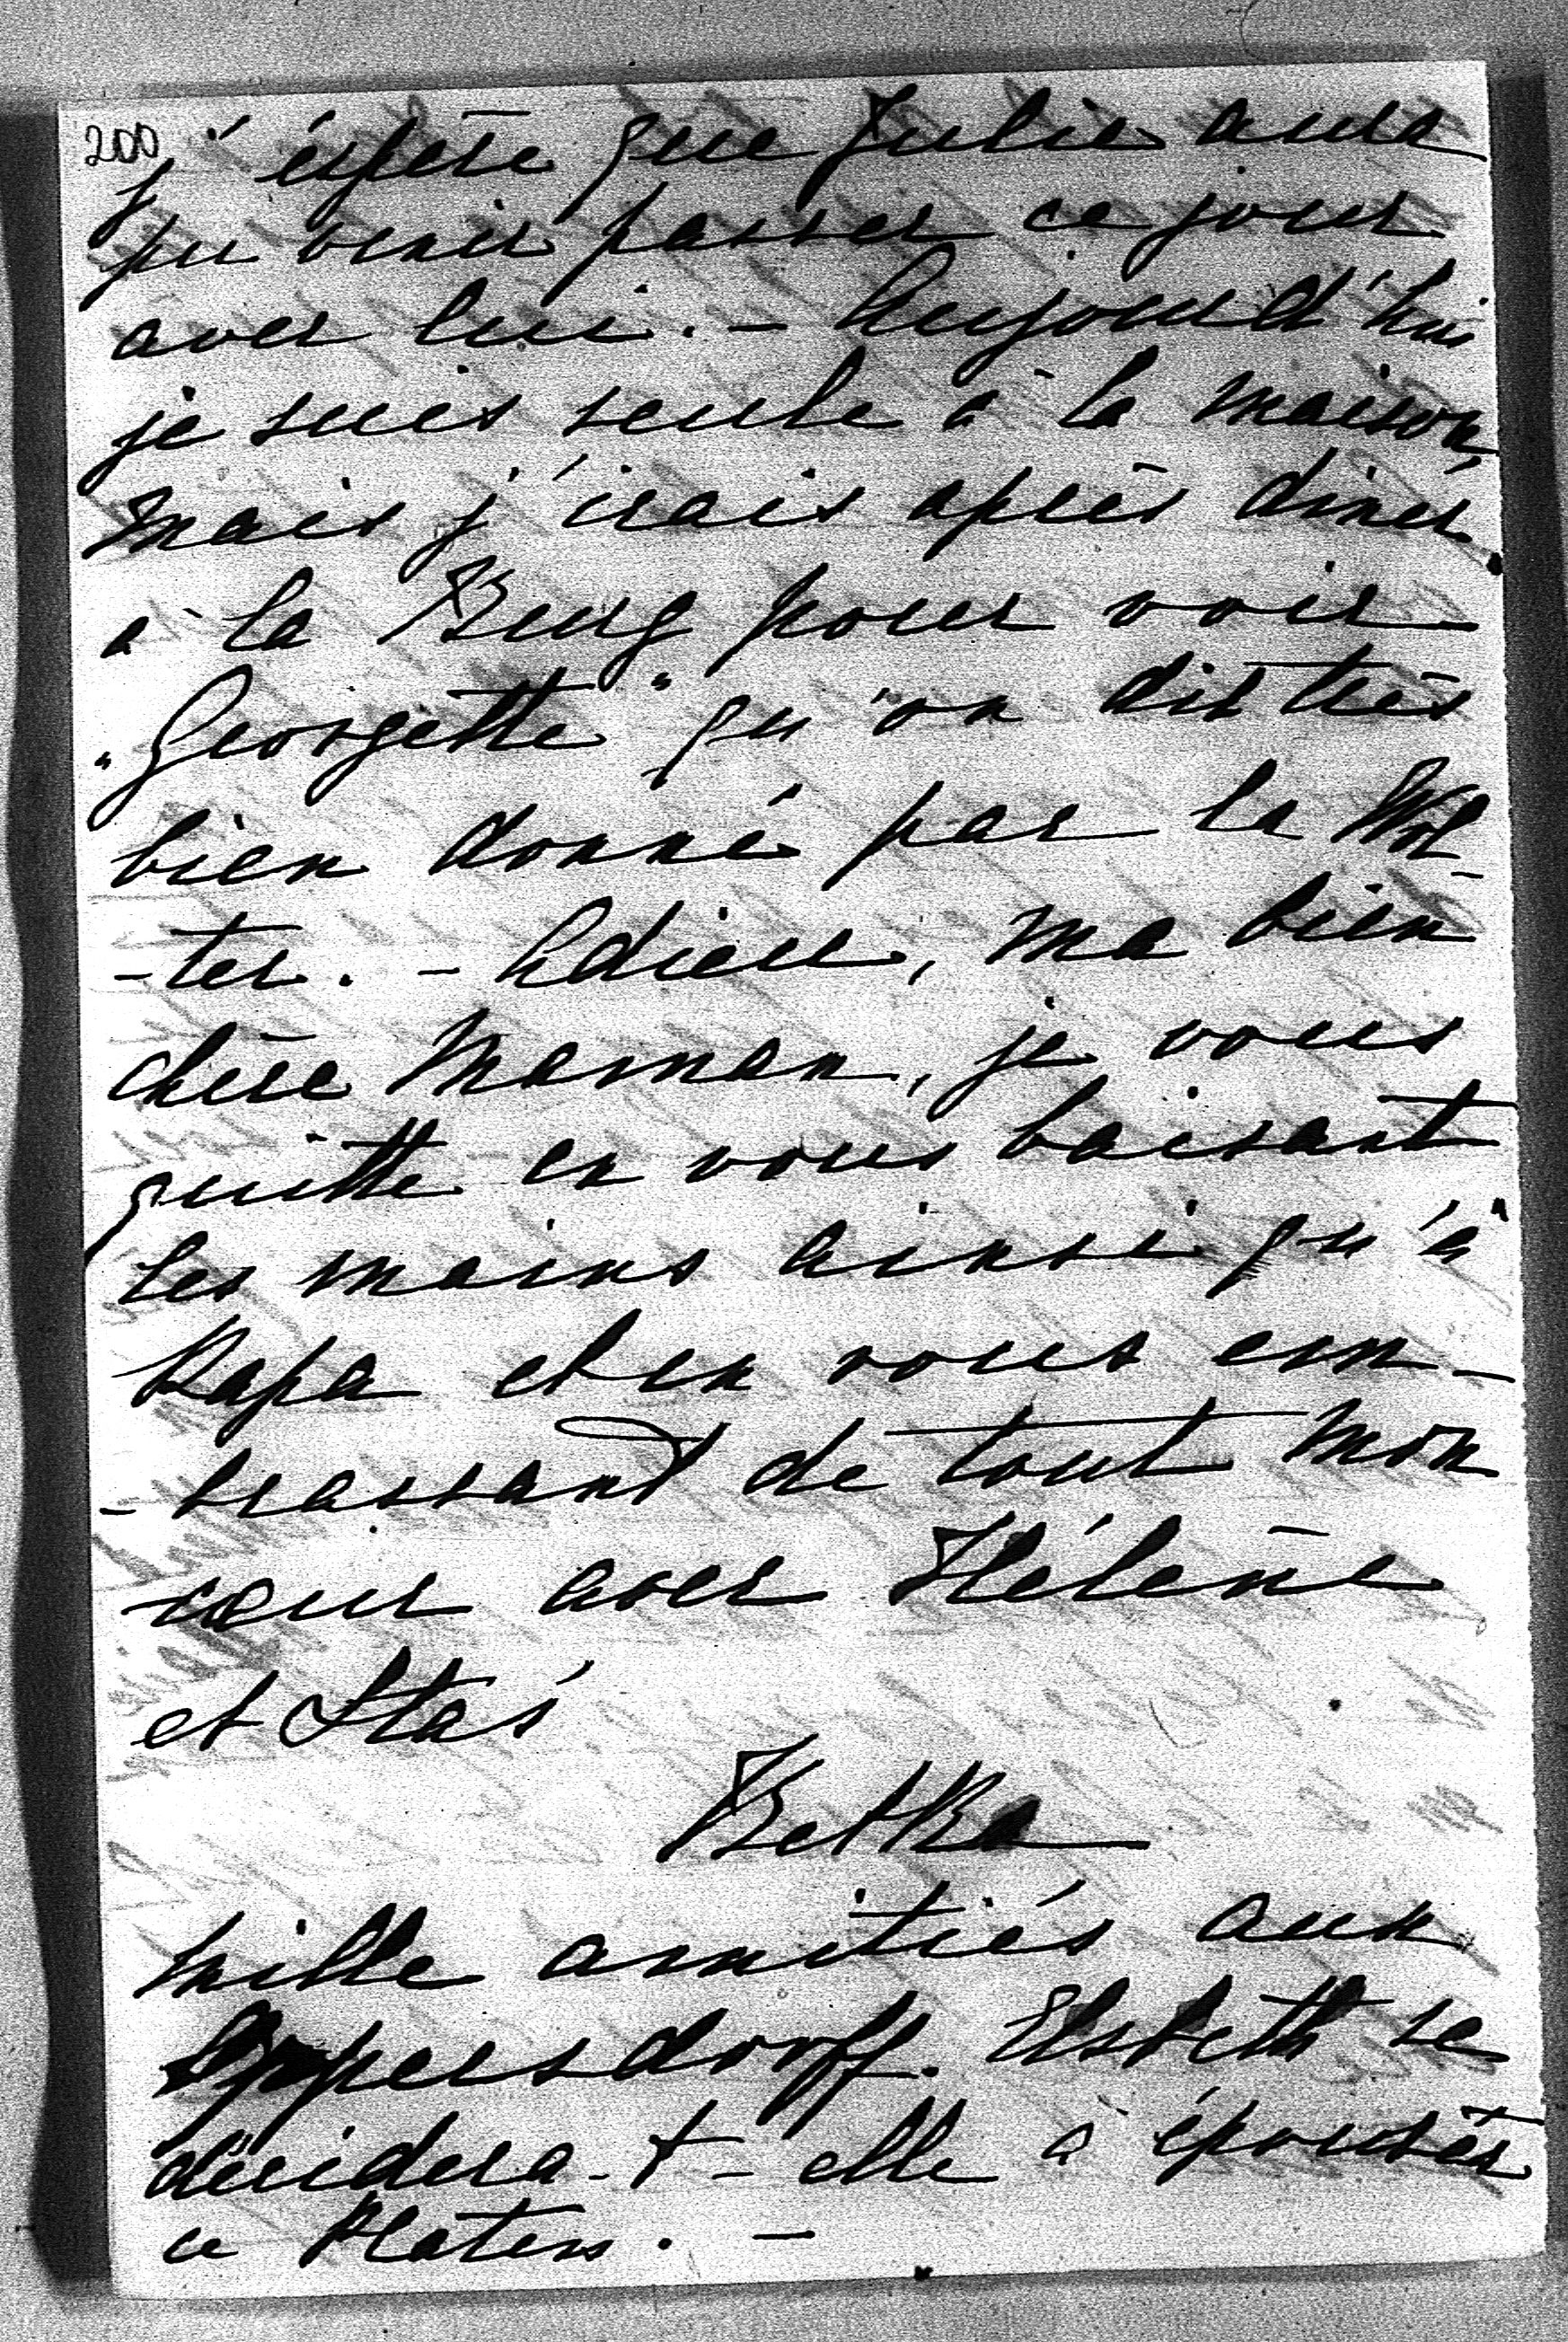 200
j'éspère que Julie aura
pu venir passer ce jour
avec lui. - Aujourd'hui
je suis seule à la maison,
mais j'irais après diner
à la Burg pour voir
„Georgette" qu'on dit très
bien donné par la Wol-
-ter. - Adieu, ma bien
chère Maman, je vous
quitte en vous baisant
les mains ainsi qu'à
Papa et en vous em-
-brassant de tout mon
cœur avec Hélène
et Staś
Betka
Mille amitiés aux
Oppersdorff. Elsbeth se
décidera-t-elle à épouser
ce Platen. -